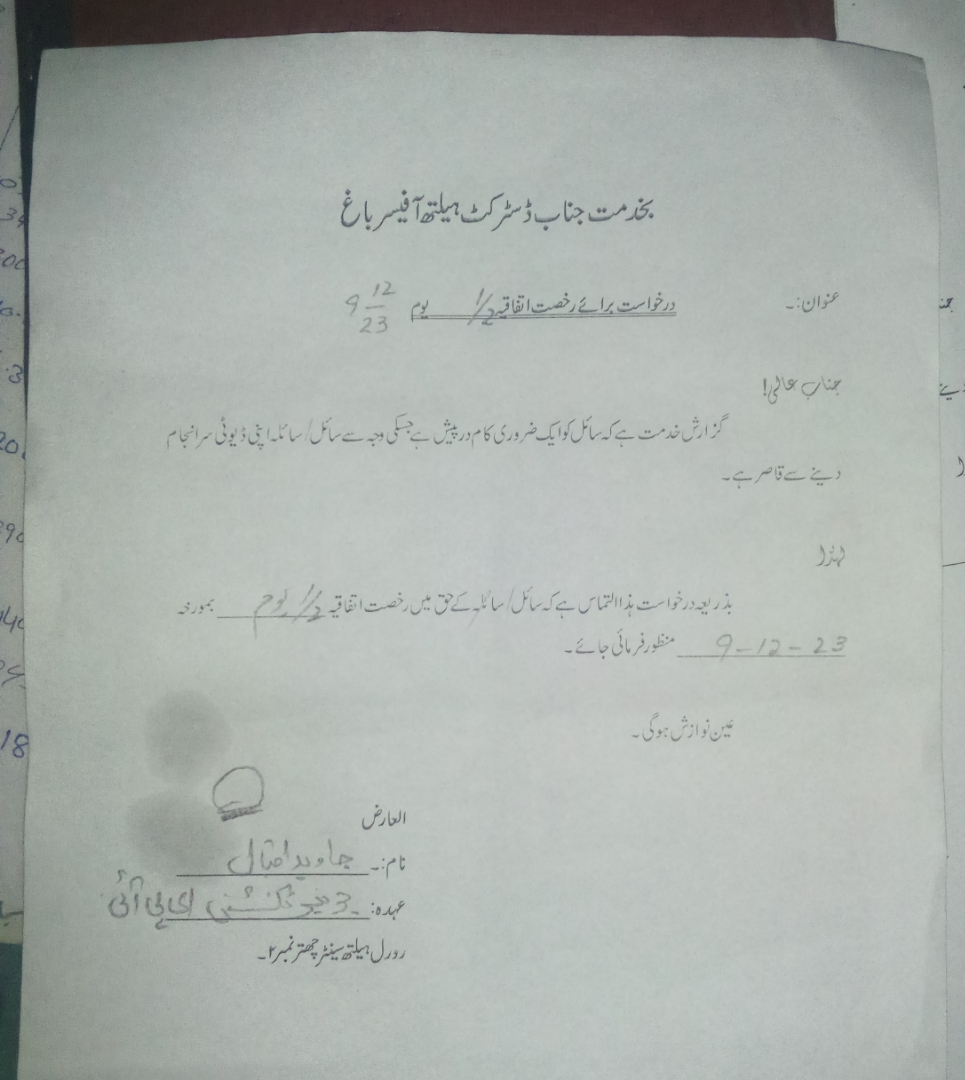 بخدمت جناب ڈسٹرکٹ ہیلتھ آفیسر باغ
عنوان:۔ درخواست برائے رخصت اتفاقیہ 1/2 یوم 9 12/23
جناب عالی!
گزارش خدمت ہے کہ سائل کو ایک ضروری کام درپیش ہے جسکی وجہ سے سائل/سائلہ اپنی ڈیوٹی سرانجام
دینے سے قاصر ہے۔
لہذا
بذریعہ درخواست ہذا التماس ہے کہ سائل/سائلہ کے حق میں رخصت اتفاقیہ 1/2 یوم بمورخہ
9-12-23 منظور فرمائی جائے۔
عین نوازش ہوگی۔
العارض
نام:۔ جاوید اقبال
عہدہ:۔ ٹیکنیشن ای پی آئی
رورل ہیلتھ سینٹر چھتر نمبر ۲۔
18